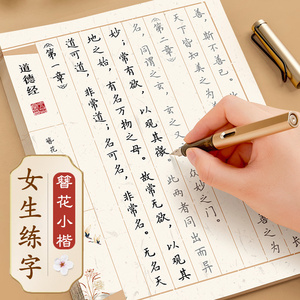 道德经
《第一章》
道可道，非常道；名可名，非常名。无名天
地之始，有名万物之母。故常无欲，以观其
妙；常有欲，以观其徼。此两者同出而异
名，同谓之玄。玄之又
众妙之门。
《第二章》
天下皆知美之为
善，斯不善已。
簪花
簪花小楷
女生练字